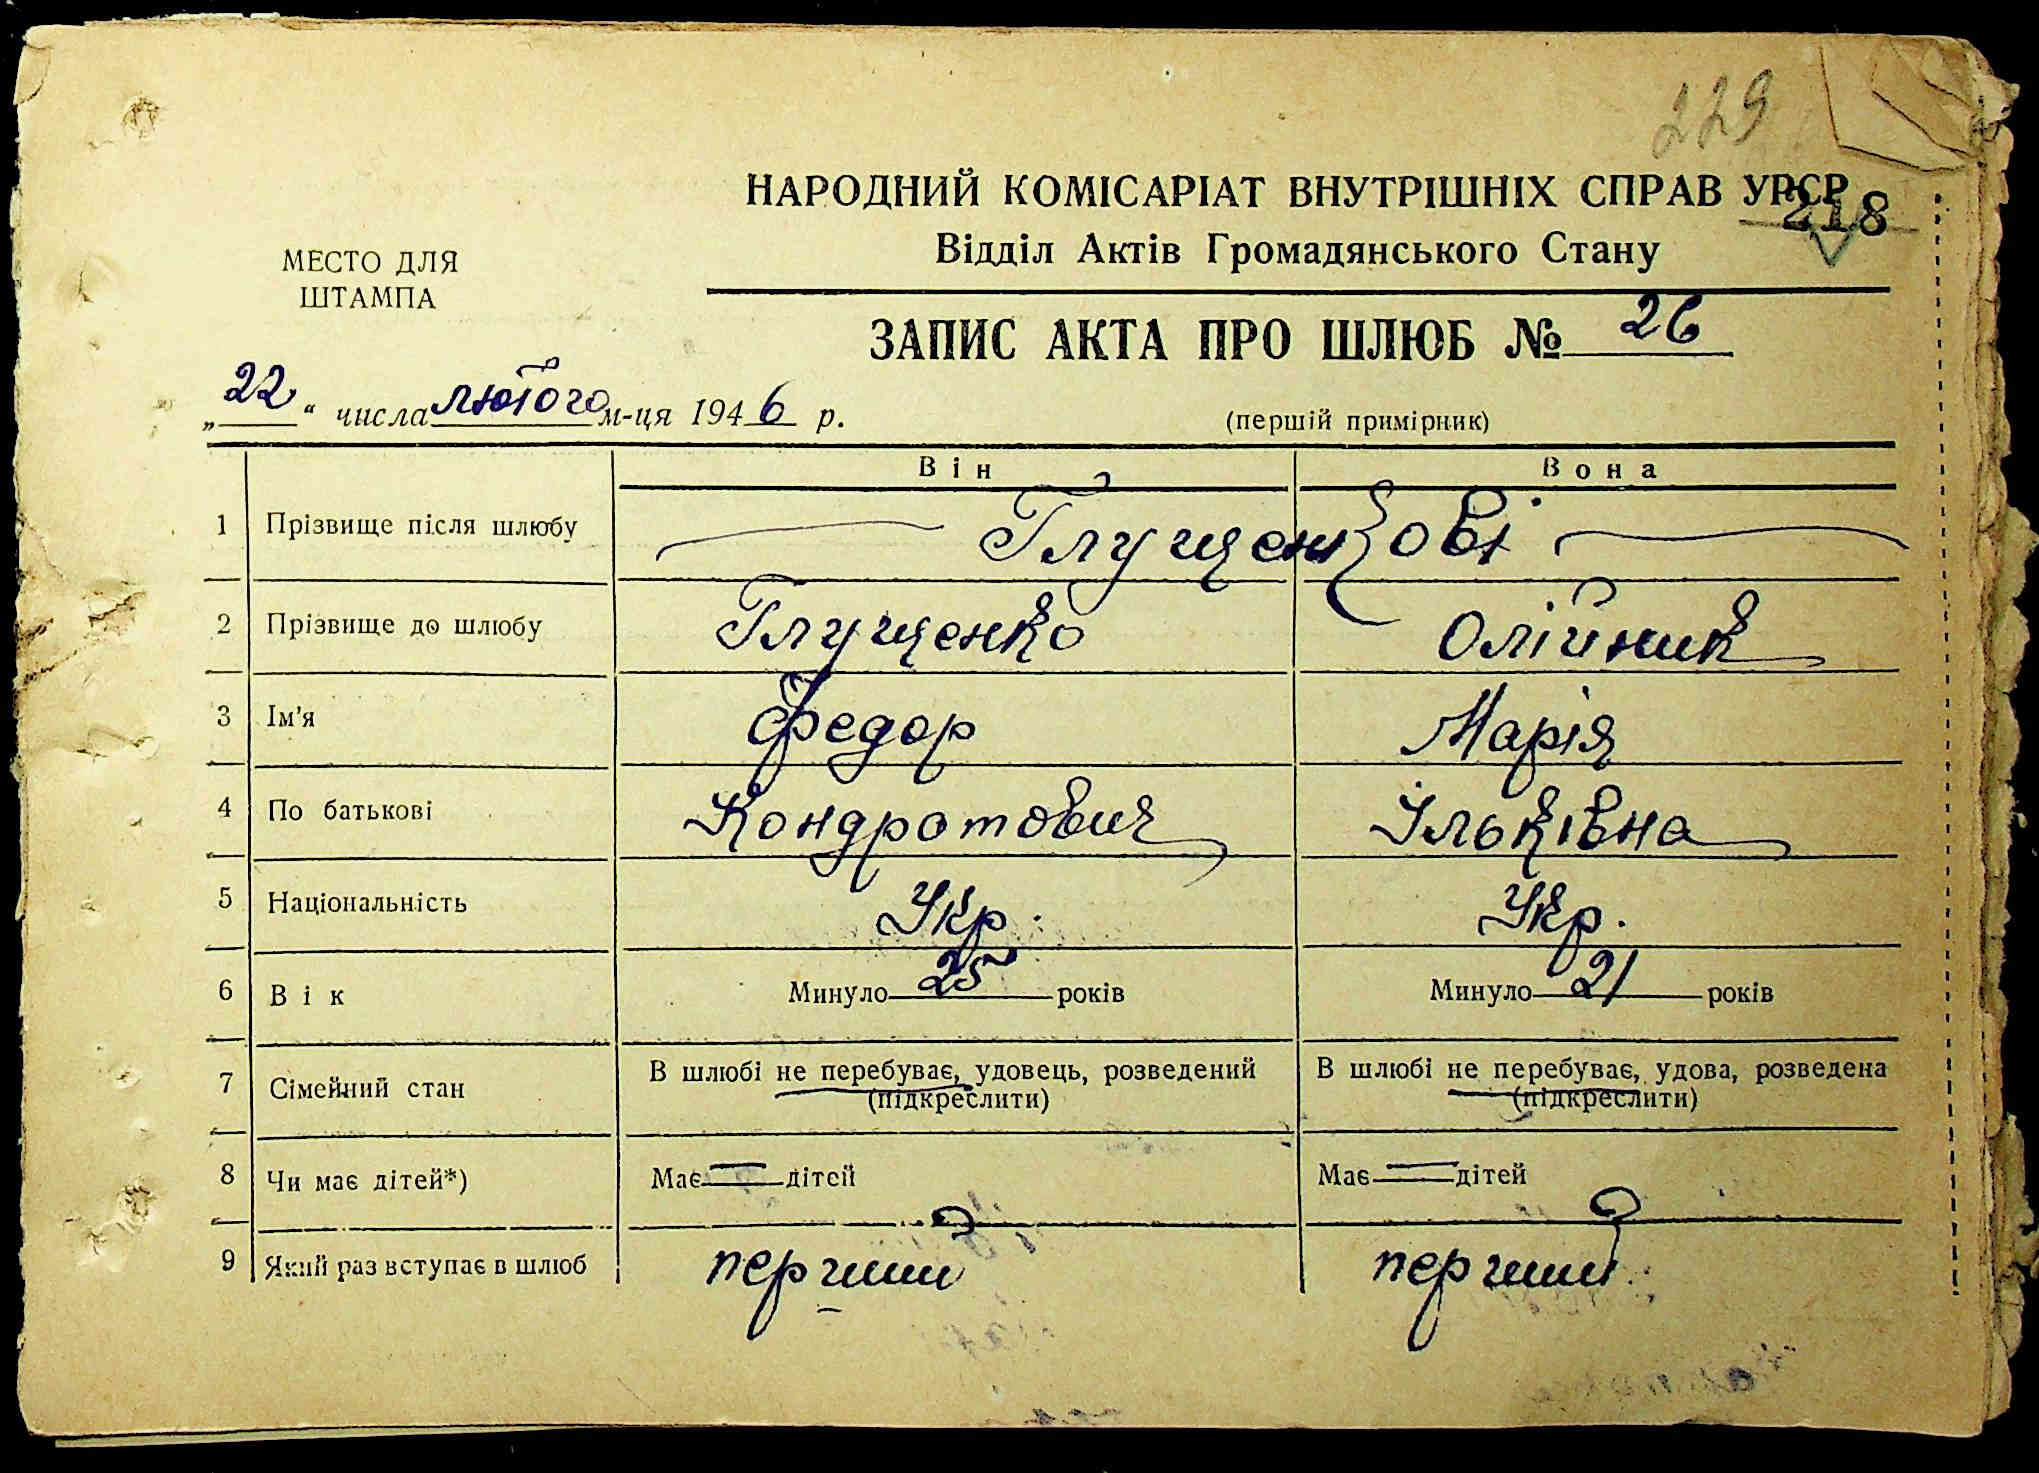 229
НАРОДНИЙ КОМІСАРІАТ ВНУТРІШНІХ СПРАВ УРСР
218
Відділ Актів Громадянського Стану
МЕСТО ДЛЯ
ШТАМПА
ЗАПИС АКТА ПРО ШЛЮБ № 26
„22“ числа лютого м-ця 1946 р.
(першій примірник)
Він Вона
1 Прізвище після шлюбу Глущенкові
2 Прізвище до шлюбу Глущенко Олійник
3 Ім'я Федор Марія
4 По батькові Кондратович Ільківна
5 Національність Укр. Укр.
6 Вік Минуло 25 років Минуло 21 років
7 Сімейний стан В шлюбі не перебуває, удовець, розведений (підкреслити) В шлюбі не перебуває, удова, розведена (підкреслити)
8 Чи має дітей*) Має — дітей Має — дітей
9 Який раз вступає в шлюб перший перший